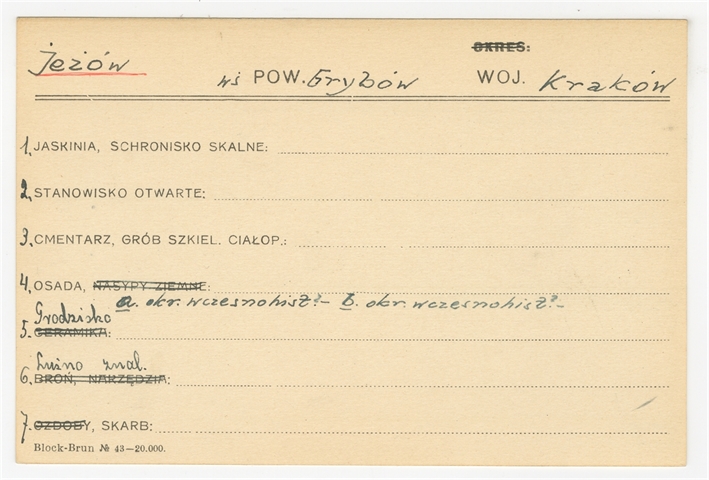 OKRES:
Jeżów wś POW. Grybów WOJ. Kraków
1. JASKINIA, SCHRONISKO SKALNE:
2. STANOWISKO OTWARTE:
3. CMENTARZ, GRÓB SZKIEL. CIAŁOP.:
4. OSADA, NASYPY ZIEMNE:
a. okr. wczesnohist? – b. okr. wczesnohist? –
Grodzisko
5. CERAMIKA:
Luźno znal.
6. BROŃ, NARZĘDZIA:
7. OZDOBY, SKARB:
Block-Brun № 43—20.000.